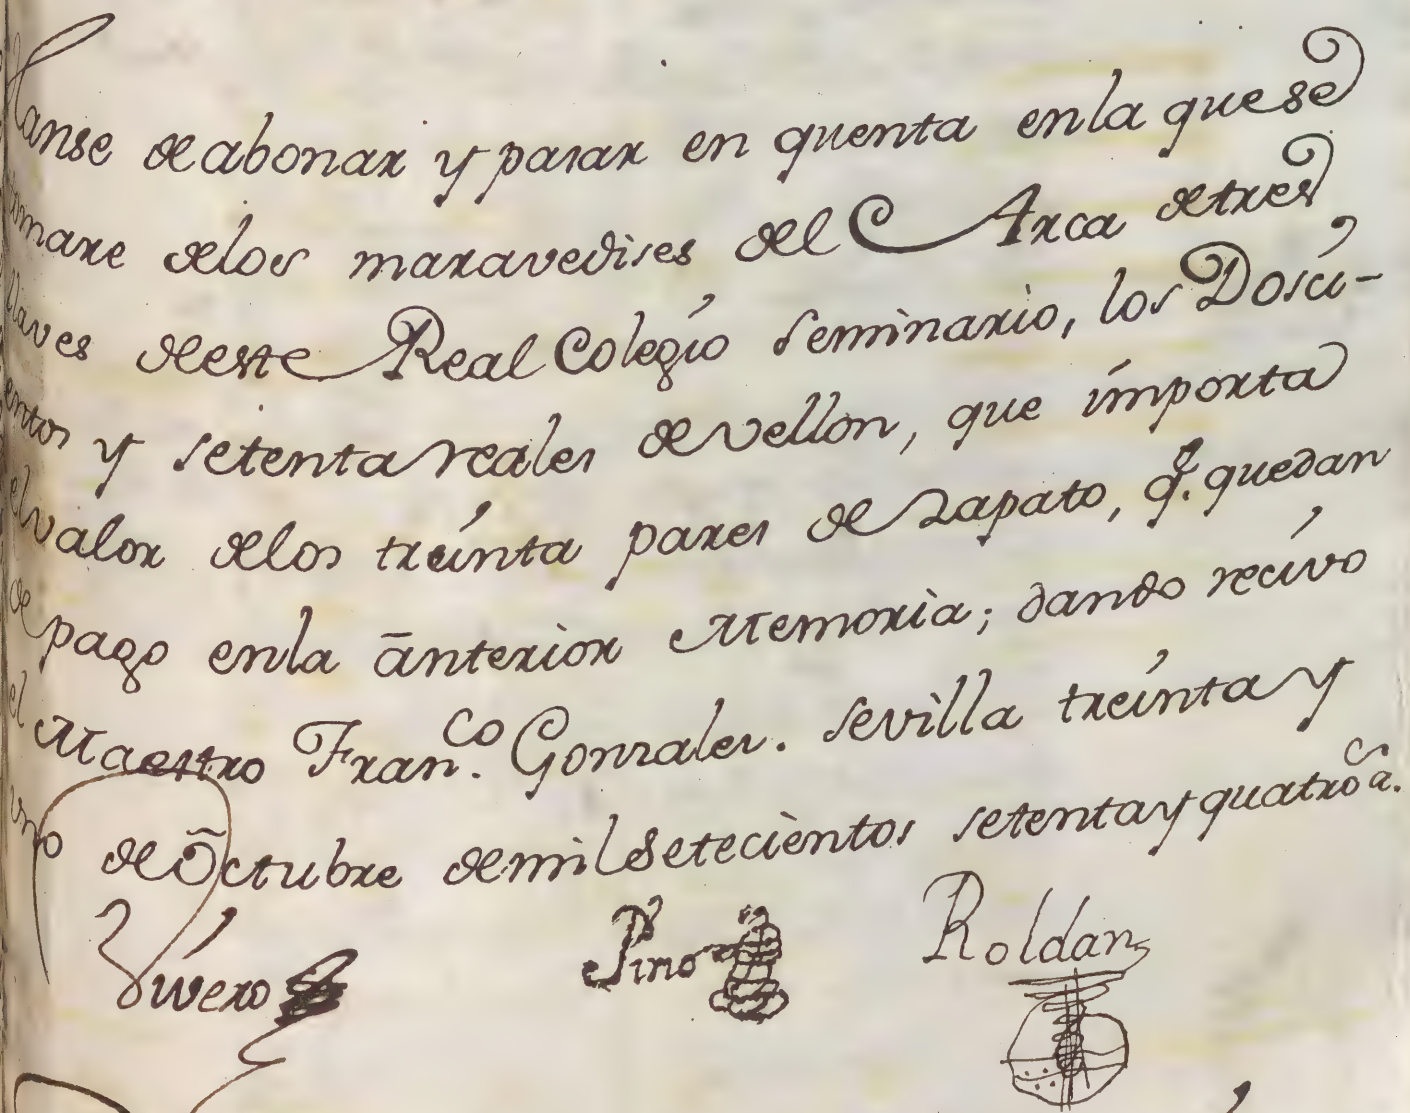 Hanse de abonar y pasar en quenta en la que se
tomare de los maravedises del Arca de tres
llaves de este Real Colegio Seminario, los Dosci-
entos y setenta reales de vellon, que importa
el valor de los treinta pares de zapato, q.e quedan
de pago en la anterior Memoria; dando recivo
el Maestro Fran.co Gonzales. Sevilla treinta y
uno de Octubre de mil Setecientos setenta y quatro a.s
Vivero Pino Roldan